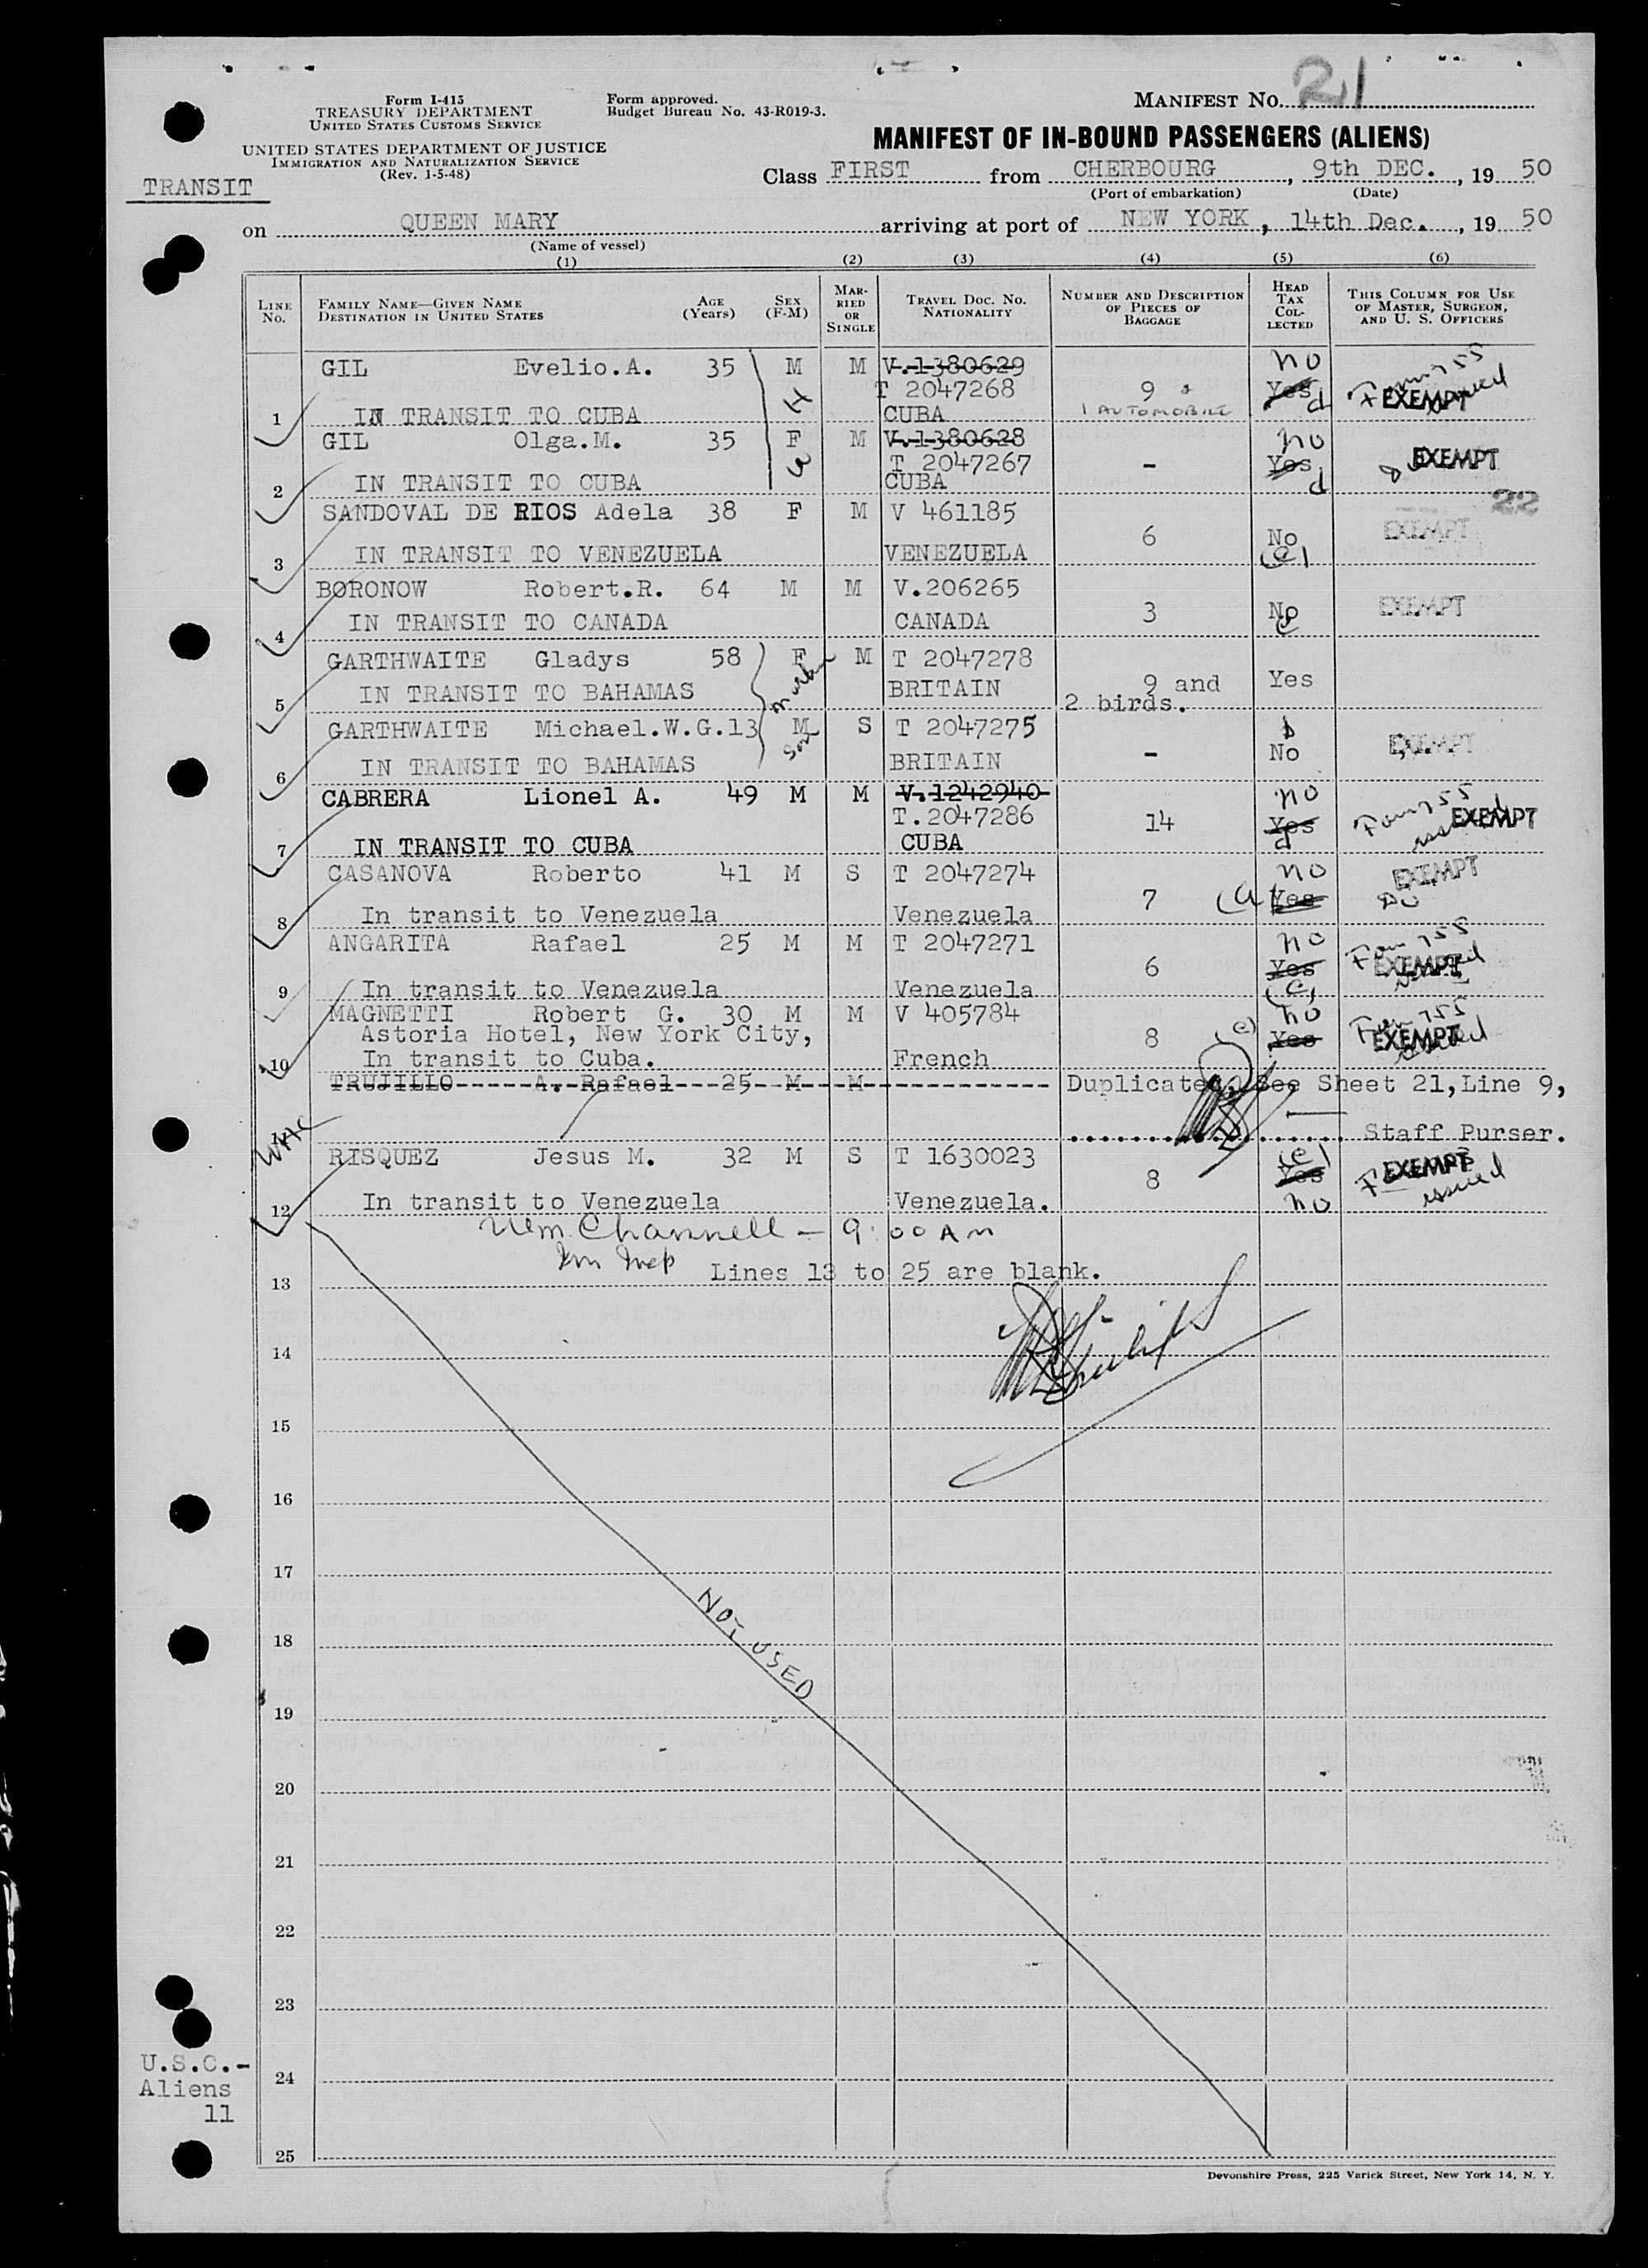 Form I-415
TREASURY DEPARTMENT
UNITED STATES CUSTOMS SERVICE
UNITED STATES DEPARTMENT OF JUSTICE
IMMIGRATION AND NATURALIZATION SERVICE
(Rev. 1-5-48)
Form approved.
Budget Bureau No. 43-R019-3.
MANIFEST NO. 21
MANIFEST OF IN-BOUND PASSENGERS (ALIENS)
TRANSIT
Class FIRST from CHERBOURG, 9th DEC., 1950
(Port of embarkation) (Date)
on QUEEN MARY arriving at port of NEW YORK, 14th Dec., 1950
(Name of vessel)
(1) (2) (3) (4) (5) (6)
LINE NO. FAMILY NAME—GIVEN NAME DESTINATION IN UNITED STATES AGE (Years) SEX (F-M) MARRIED OR SINGLE TRAVEL DOC. NO. NATIONALITY NUMBER AND DESCRIPTION OF PIECES OF BAGGAGE HEAD TAX COLLECTED THIS COLUMN FOR USE OF MASTER, SURGEON, AND U. S. OFFICERS
GIL Evelio.A. 35 M M V.1380629 no
H T 2047268 9 Yes Form 755 issued EXEMPT
1 IN TRANSIT TO CUBA CUBA 1 AUTOMOBILE d
GIL Olga.M. 35 F M V.1380628 no
W T 2047267 - Yes EXEMPT
2 IN TRANSIT TO CUBA CUBA d
22
SANDOVAL DE RIOS Adela 38 F M V 461185 6 No EXEMPT
3 IN TRANSIT TO VENEZUELA VENEZUELA (e)
BORONOW Robert.R. 64 M M V.206265 3 No EXEMPT
4 IN TRANSIT TO CANADA CANADA c
GARTHWAITE Gladys 58 F M T 2047278 9 and Yes
5 IN TRANSIT TO BAHAMAS BRITAIN 2 birds.
GARTHWAITE Michael.W.G. 13 M S T 2047275 - No EXEMPT
son
6 IN TRANSIT TO BAHAMAS BRITAIN
CABRERA Lionel A. 49 M M V.1242940 no
T.2047286 14 Yes Form 755 issued EXEMPT
7 IN TRANSIT TO CUBA CUBA d
CASANOVA Roberto 41 M S T 2047274 no EXEMPT
7 (a) Yes Do
8 In transit to Venezuela Venezuela
ANGARITA Rafael 25 M M T 2047271 no Form 755 issued
6 Yes EXEMPT
9 In transit to Venezuela Venezuela (e)
MAGNETTI Robert G. 30 M M V 405784 no Form 755 issued
Astoria Hotel, New York City, 8 (e) Yes EXEMPT
10 In transit to Cuba. French
TRUJILLO A. Rafael 25 M M Duplicated, See Sheet 21, Line 9,
11 Staff Purser.
WHC
RISQUEZ Jesus M. 32 M S T 1630023 8 (e) Yes EXEMPT issued
12 In transit to Venezuela Venezuela. no
Wm Channell - 9:00 AM
Im Insp
13 Lines 13 to 25 are blank.
14
15
16
17
NOT USED
18
19
20
21
22
23
24
25
U.S.C.-
Aliens
11
Devonshire Press, 225 Varick Street, New York 14, N. Y.